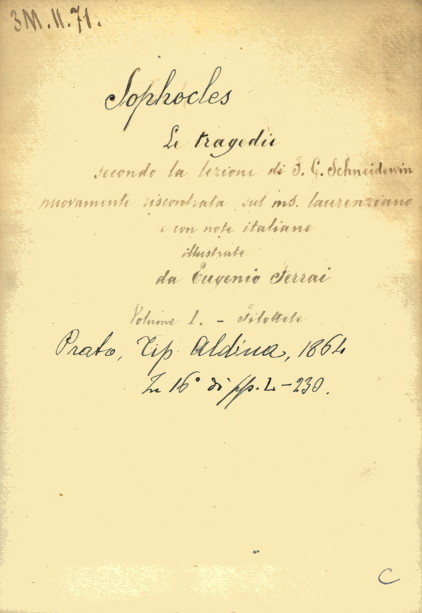 3M.II.71.
Sophocles
Le tragedie
secondo la lezione di F. G. Schneidewin
nuovamente riscontrata sul ms. laurenziano
e con note italiane
illustrate
da Eugenio Ferrai
Volume I. - Filottete
Prato, Tip. Aldina, 1864
In 16° di pp. L-230.
C